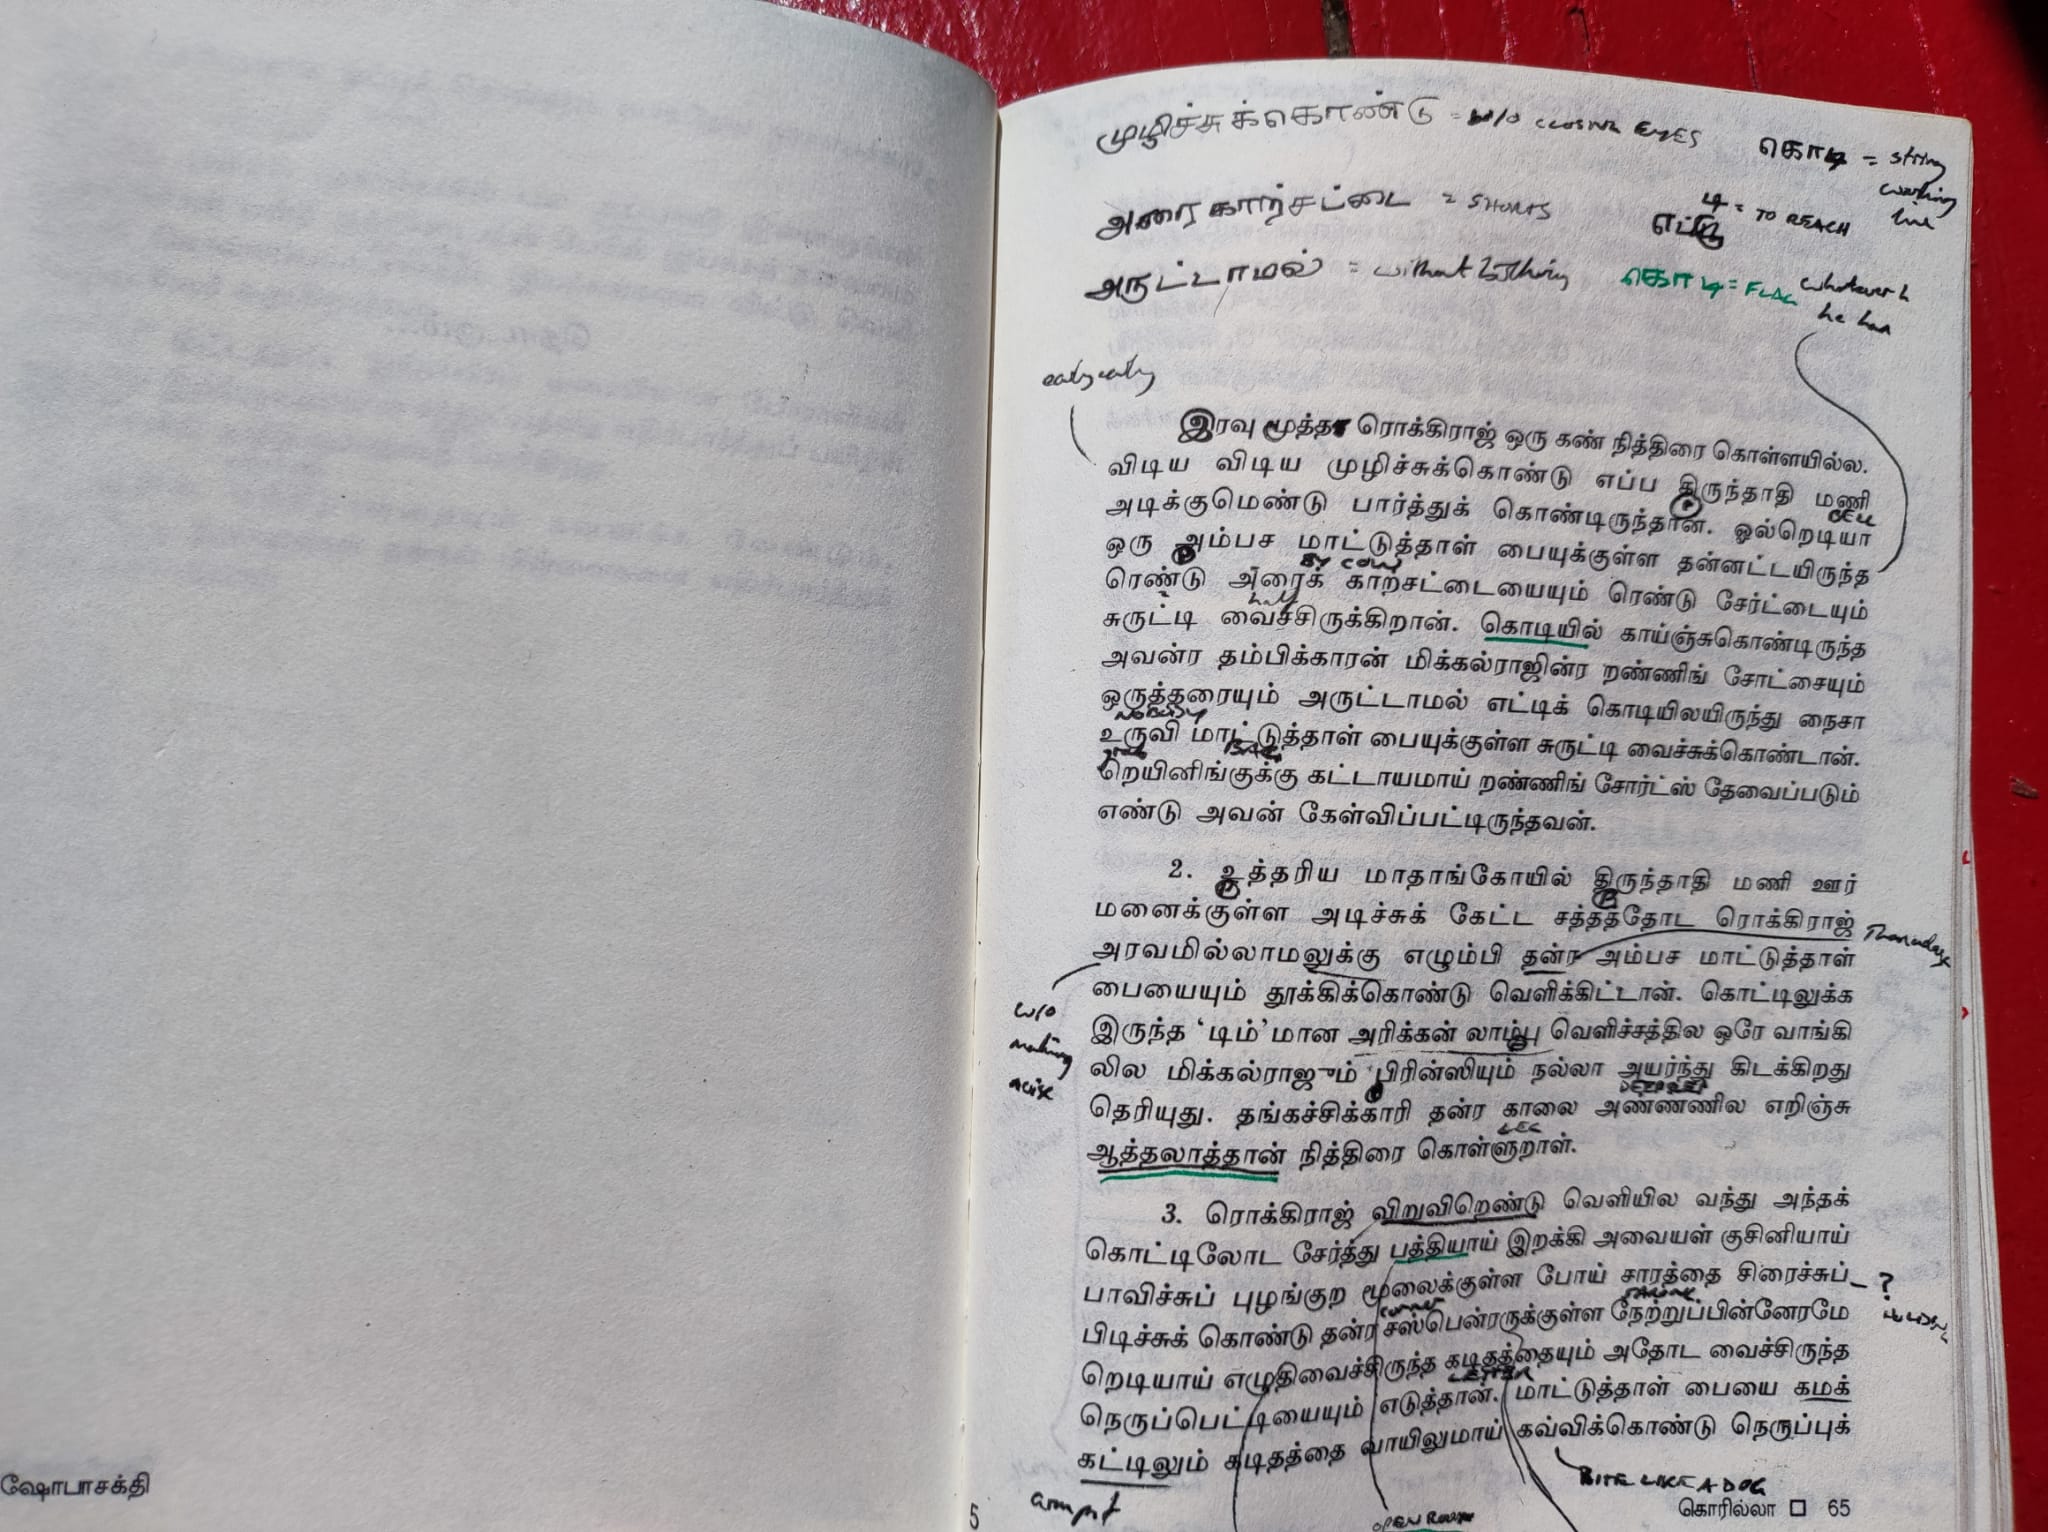 முழிச்சுக்கொண்டு = W/O CLOSING EYES
கொடி = string
washing
line
அரை காற்சட்டை = SHORTS
டி
எட்டு = TO REACH
அருட்டாமல் = without
கொடி = FLAG
whatever
he has
early early
இரவு மூத்தர ரொக்கிராஜ் ஒரு கண் நித்திரை கொள்ளயில்ல.
விடிய விடிய முழிச்சுக்கொண்டு எப்ப திருந்தாதி மணி
அடிக்குமெண்டு பார்த்துக் கொண்டிருந்தான். ஓல்றெடியா
BELL
ஒரு அம்பச மாட்டுத்தாள் பையுக்குள்ள தன்னட்டயிருந்த
BY COW
ரெண்டு அரைக் காற்சட்டையையும் ரெண்டு சேர்ட்டையும்
half
சுருட்டி வைச்சிருக்கிறான். கொடியில் காய்ஞ்சுகொண்டிருந்த
அவன்ர தம்பிக்காரன் மிக்கல்ராஜின்ர றண்ணிங் சோட்சையும்
ஒருத்தரையும் அருட்டாமல் எட்டிக் கொடியிலயிருந்து நைசா
NOBODY
உருவி மாட்டுத்தாள் பையுக்குள்ள சுருட்டி வைச்சுக்கொண்டான்.
BAG
றெயினிங்குக்கு கட்டாயமாய் றண்ணிங் சோர்ட்ஸ் தேவைப்படும்
எண்டு அவன் கேள்விப்பட்டிருந்தவன்.
2. உத்தரிய மாதாங்கோயில் திருந்தாதி மணி ஊர்
மனைக்குள்ள அடிச்சுக் கேட்ட சத்தத்தோட ரொக்கிராஜ்
அரவமில்லாமலுக்கு எழும்பி தன்ர அம்பச மாட்டுத்தாள்
பையையும் தூக்கிக்கொண்டு வெளிக்கிட்டான். கொட்டிலுக்க
w/o
making
noise
இருந்த ‘டிம்’மான அரிக்கன் லாம்பு வெளிச்சத்தில ஒரே வாங்கி
லில மிக்கல்ராஜும் பிரின்ஸியும் நல்லா அயர்ந்து கிடக்கிறது
தெரியுது. தங்கச்சிக்காரி தன்ர காலை அண்ணணில எறிஞ்சு
LEG
ஆத்தலாத்தான் நித்திரை கொள்ளுறாள்.
3. ரொக்கிராஜ் விறுவிறெண்டு வெளியில வந்து அந்தக்
கொட்டிலோட சேர்த்து பத்தியாய் இறக்கி அவையள் குசினியாய்
பாவிச்சுப் புழங்குற மூலைக்குள்ள போய் சாரத்தை சிரைச்சுப்
?
corner
SARONG
பிடிச்சுக் கொண்டு தன்ர சஸ்பென்ரருக்குள்ள நேற்றுப்பின்னேரமே
றெடியாய் எழுதிவைச்சிருந்த கடிதத்தையும் அதோட வைச்சிருந்த
LETTER
நெருப்பெட்டியையும் எடுத்தான். மாட்டுத்தாள் பையை கமக்
கட்டிலும் கடிதத்தை வாயிலுமாய் கவ்விக்கொண்டு நெருப்புக்
armpit
BITE LIKE A DOG
OPEN ROOM
ஷோபாசக்தி
5
கொரில்லா □ 65